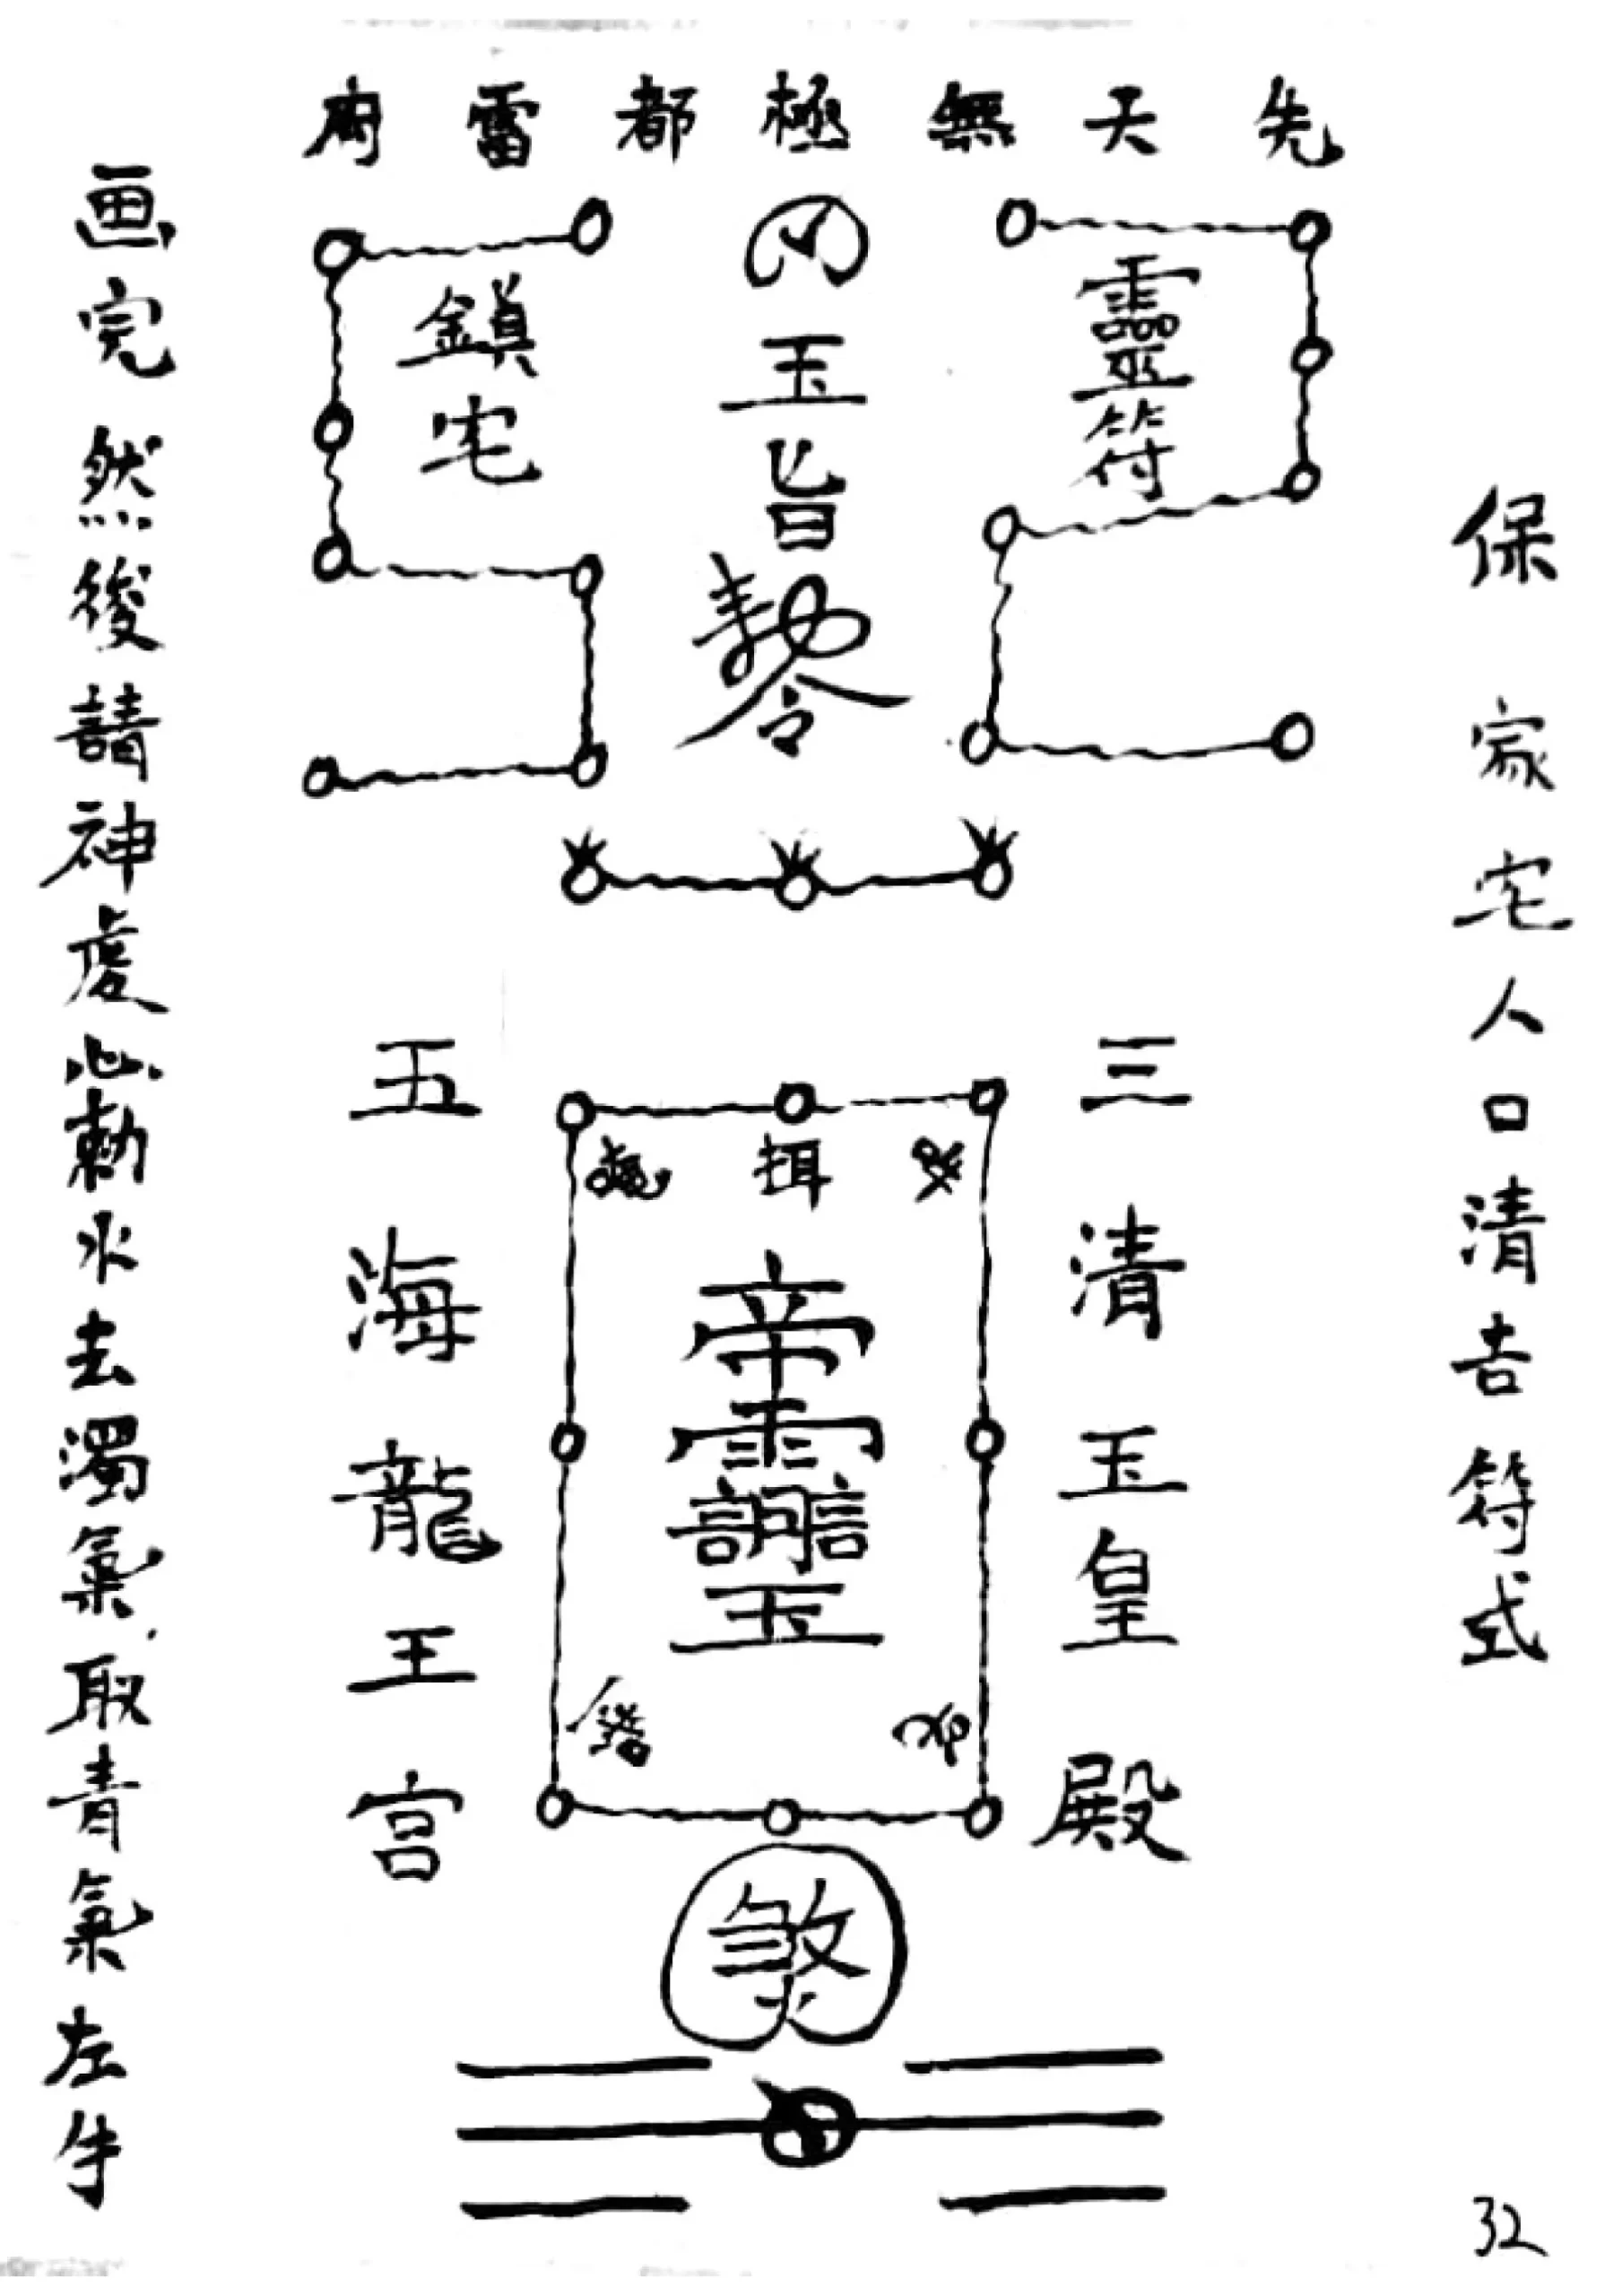 保家宅人口清吉符式
先天無極都雷府
靈符
玉旨
勅令
鎮宅
三清玉皇殿
帝
玉
五海龍王宮
煞
画完然後請神虔心勅水去濁氣取青氣左手
32